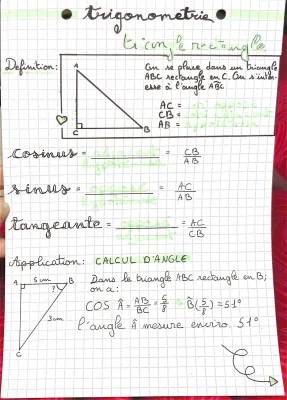 trigonométrie
triangle rectangle
Definition:
On se place dans un triangle
ABC rectangle en C. On s'inté-
esse à l'angle ABC.
A
C
B
AC =
CB =
AB =
cosinus = = CB/AB
sinus = = AC/AB
tangeante = = AC/CB
Application: CALCUL D'ANGLE
A 5 cm B
?
8cm
C
Dans le triangle ABC rectangle en B;
on a:
COS Â = AB/BC = 5/8 B(5/8) = 51°
l'angle Â mesure enviro 51°